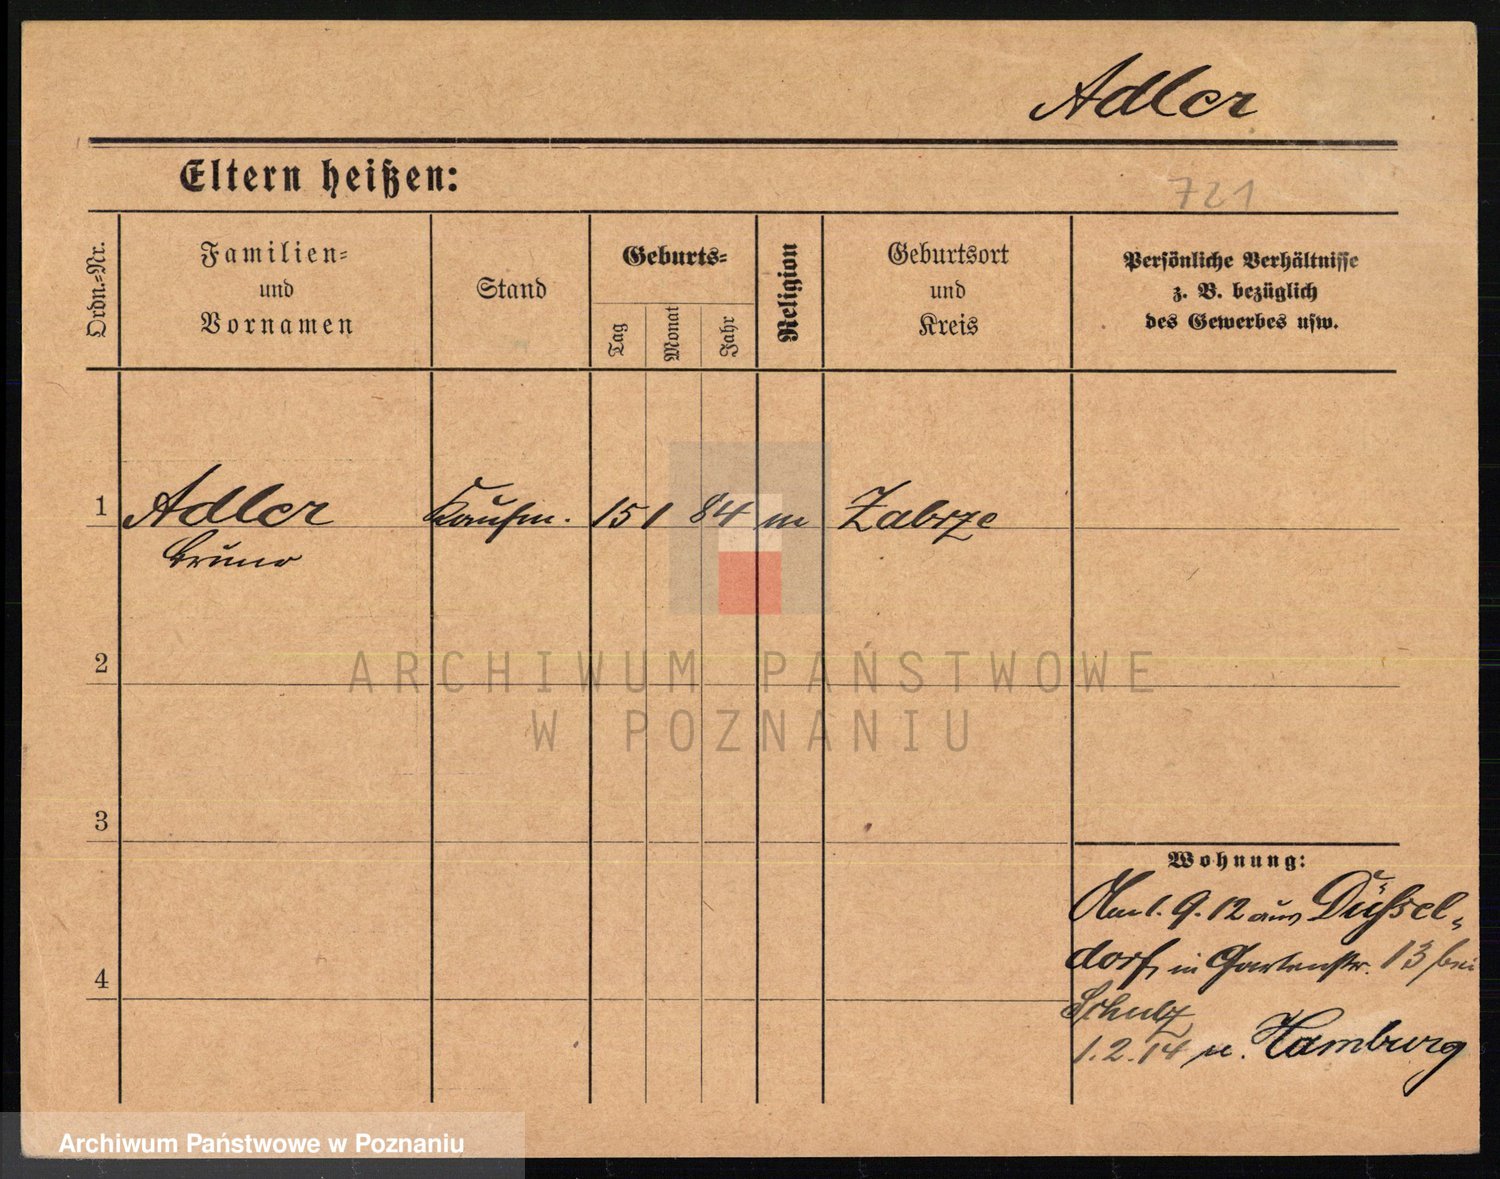 Adler
Eltern heißen:
721
Ordn.=Nr.
Familien=
und
Vornamen
Stand
Geburts=
Tag
Monat
Jahr
Religion
Geburtsort
und
Kreis
Persönliche Verhältnisse
z. B. bezüglich
des Gewerbes usw.
1 Adler Kaufm. 15 1 84 m Zabrze
Bruno
2
3
4
Wohnung:
Am 1. 9. 12 aus Düssel-
dorf, in Gartenstr. 13 bei
Schulz
1. 2. 14 n. Hamburg
ARCHIWUM PAŃSTWOWE
W POZNANIU
Archiwum Państwowe w Poznaniu